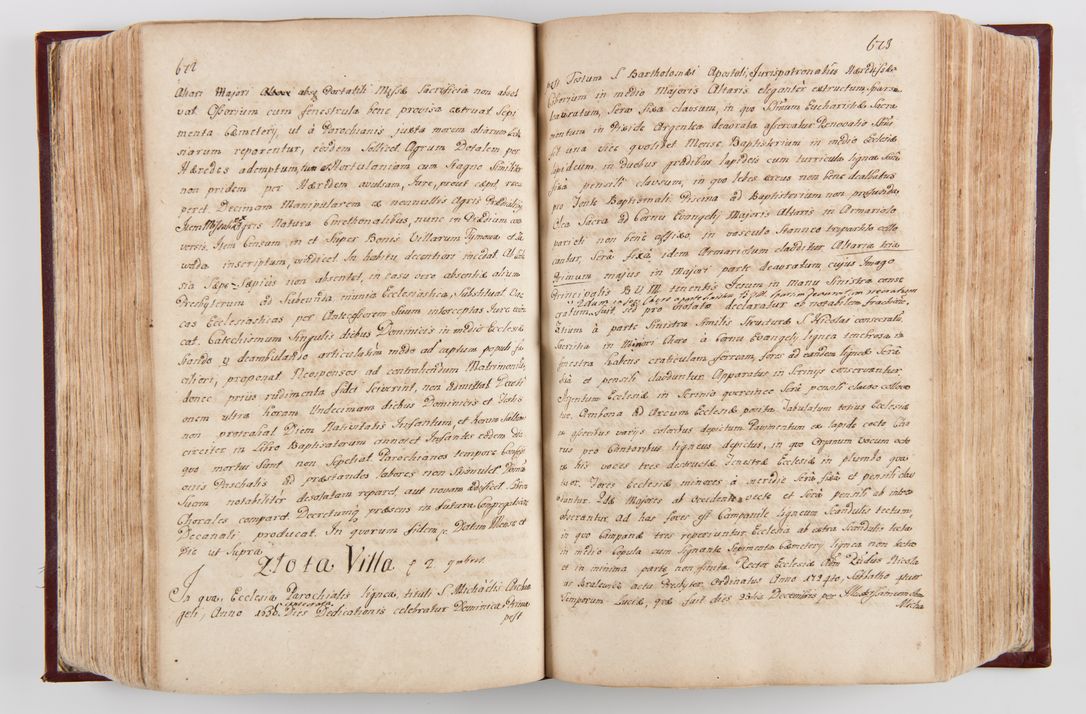 672
Altari Majori absq Portatili Missæ Sacrificia non absol
vat. Ossorium cum fenestrula bene provisa extruat. Sepi
menta Cæmeterij, ut à Parochianis juxta morem aliarum Eccle
siarum reparentur, eosdem Sollicitet Agrum Dotalem, per
Hæredes ademptum, tum et Hortulaniam cum Stagno Similiter
non pridem per Hæredem avulsam, Jure, prout cæpit, recu
peret. Decimam Manipularem ex nonnullis Agris Prædialibus
Item Missalia ex Agris Natura Cmethonalibus, nunc in Prædium con
versis. Item Censum in et Super Bonis Villarum Tymowa et Ja
woda inscriptum, vindicet. In habitu decentiori incedat. Ab Eccle
sia Sæpè-Sæpius non absentet, in casu vero absentiæ alium
Presbyterum ad Subeunda munia Ecclesiastica, Substituat. Vac
cas Ecclesiasticas per Antecessorem Suum interceptas Jure vin
cat. Catechismum Singulis diebus Dominicis in medio Ecclesiæ
Stando et deambulando articulatim modo ad captum populi fa
ciliori, proponat. Neosponsos ad contrahendum Matrimonium,
donec prius rudimenta fidei Sciverint, non admittat. Devoti
onem ultra horam Undecimam diebus Dominicis et Festis
non protrahat. Diem Nativitatis Infantium, et horam Saltem
circiter in Libro Baptisatorum annotet. Infantes eodem die
quo mortui Sunt non Sepeliat. Parochianos tempore Confessi
onis Paschalis ad præstandos labores non Stimulet. Domum
Suam notabiliter desolatam reparet, aut novam ædificet. Libros
Chorales comparet. Decretum præsens in futura Congregatione
Decanali producat. In quorum fidem. Datum Mense et
Die ut Supra.
Zlota Villa
In qua, Ecclesia Parochialis lignea, tituli S. Michaëlis Archan
geli, Anno 1638. Dies Dedicationis celebratur Dominica Prima
post
673
post Festum S. Bartholomæi Apostoli, Jurispatronatus Hæredis
Ciborium in medio Majoris Altaris eleganter extructum,
deauratum, Serâ fixâ clausum, in quo SSmum Eucharistiæ Sacra
mentum in Pixide Argentea deaurata asservatur. Renovatio
fit una vice quolibet Mense. Baptisterium in medio Ecclesiæ
lapideum, in duobus gradibus lapideis cum turricula lignea Serâ
fixâ pensili clausum, in quo lebes æreus non bene dealbatus
pro Fonte Baptismali. Piscina ad Baptisterium non profunda
Olea Sacra ad Cornu Evangelij Majoris Altaris in Armariolo
parieti non bene affixo, in vasculo Stanneo tripartito collo
cantur, Serâ fixâ, idem Armariolum clauditur. Altaria tria
Primum majus in majori parte deauratum, cujus Imago
Principalis B.V.M. tenentis Jesum in manu Sinistra
gratum fuit, sed pro violato declaratur ob notabilem fractionem.
Tertium à parte Sinistra Similis Structuræ S. Nicolai consecratum
Sacristia in Minori Choro à Cornu Evangelij lignea tenebrosa in
fenestra habens craticulam ferream, fores ad eandem ligneæ Serâ
fixâ et pensili clauduntur. Apparatus in Scrinijs conservantur
Argentum Ecclesiæ in Scrinio quercineo Serâ pensili clauso colloca
tur. Ambona ad Arcum Ecclesiæ posita. Tabulatum totius Ecclesiæ
ex asseribus varijs coloribus depictum. Pavimentum ex lapide cocto. Cho
rus pro Cantoribus ligneus depictus, in quo Organum vocum octo
ex his voces tres destructæ. Fenestræ Ecclesiæ in plumbo qua
tuor. Fores Ecclesiæ minores à meridie Serâ fixâ et pensili clau
duntur. Aliæ Majores ab Occidente vecte et Serâ pensili ab intro
obserantur. Ad has fores est Campanile ligneum Scandulis tectum,
in quo Campanæ tres reperiuntur. Ecclesia ab extra Scandulis tecta
in medio Copula cum Signante. Sepimenta Cæmeterij lignea non tecta
et in minima parte non finita. Rector Ecclesiæ
actu Presbyter, Ordinatus Anno 1724to, Sabbatho quatuor
Temporum Luciæ, quæ fuit dies 23tia Decembris per Illustrissimum
Micha